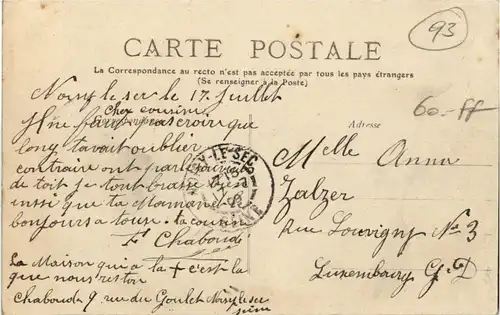 93
CARTE POSTALE
La Correspondance au recto n'est pas acceptée par tous les pays étrangers
(Se renseigner à la Poste)
60.-ff
Noisy le sec le 17 Juillet
Cher cousine
Il ne faut pas croir que
long t'avait oublier
contraire ont parle
de toit je tout brasse
inssi que ta Maman
bonjours a tous. ta cousine
F Chaboud
La Maison qui a la + c'est la
que nous reston
Chaboud 9 rue du Goulet Noisy le sec
seine
NOISY-LE-SEC
SEINE
Adresse
Melle Anna
Zalzer
Rue Louvigny No 3
Luxembourg G-D